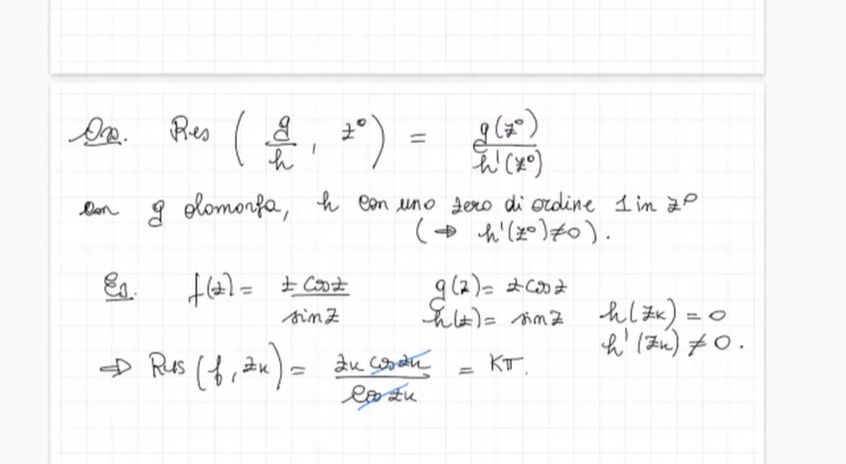 Oss. Res ( g/h , z⁰ ) = g(z⁰)/h'(z⁰)
con g olomorfa, h con uno zero di ordine 1 in z⁰
(⇒ h'(z⁰)≠0).
Es. f(z)= z cos z / sin z g(z)= z cos z
h(z)= sin z h(zₖ)=0
h'(zₖ)≠0.
⇒ Res (f, zₖ)= zₖ cos zₖ / cos zₖ = kπ.